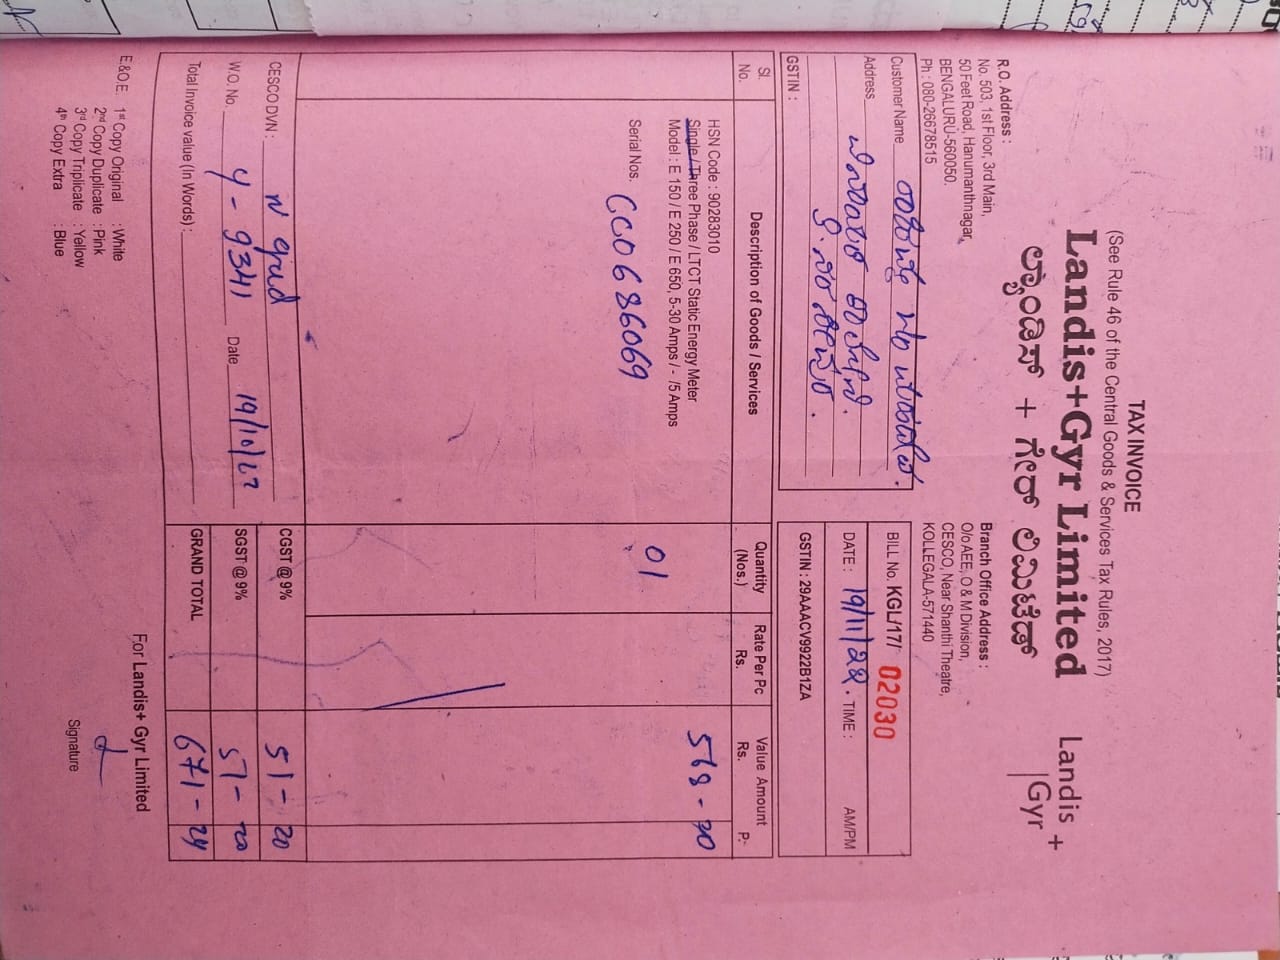 TAX INVOICE
(See Rule 46 of the Central Goods & Services Tax Rules, 2017)
Landis+Gyr Limited
ಲ್ಯಾಂಡಿಸ್ + ಗೇರ್ ಲಿಮಿಟೆಡ್
Landis
+
Gyr
R.O. Address :
No. 503, 1st Floor, 3rd Main,
50 Feet Road, Hanumanthnagar,
BENGALURU-560050.
Ph : 080-26678515
Branch Office Address :
O/o AEE, O & M Division,
CESCO, Near Shanthi Theatre,
KOLLEGALA-571440
Customer Name
Address
GSTIN :
BILL No. KGL/17/ 02030
DATE : 19/11/22. TIME : AM/PM
GSTIN : 29AAACV9922B1ZA
Sl. No. Description of Goods / Services Quantity (Nos.) Rate Per Pc Rs. Value Amount Rs. P.
HSN Code : 90283010 568-70
Single / Three Phase / LTCT Static Energy Meter
Model : E 150 / E 250 / E 650, 5-30 Amps / - /5 Amps
Serial Nos. CC0686069 01
CESCO DVN : CGST @ 9% 51-20
W.O. No. Y-9341 Date 19/10/22 SGST @ 9% 51-20
Total Invoice value (In Words) : GRAND TOTAL 671-24
E.&O.E. 1st Copy Original : White
2nd Copy Duplicate : Pink
3rd Copy Triplicate : Yellow
4th Copy Extra : Blue
For Landis+ Gyr Limited
Signature